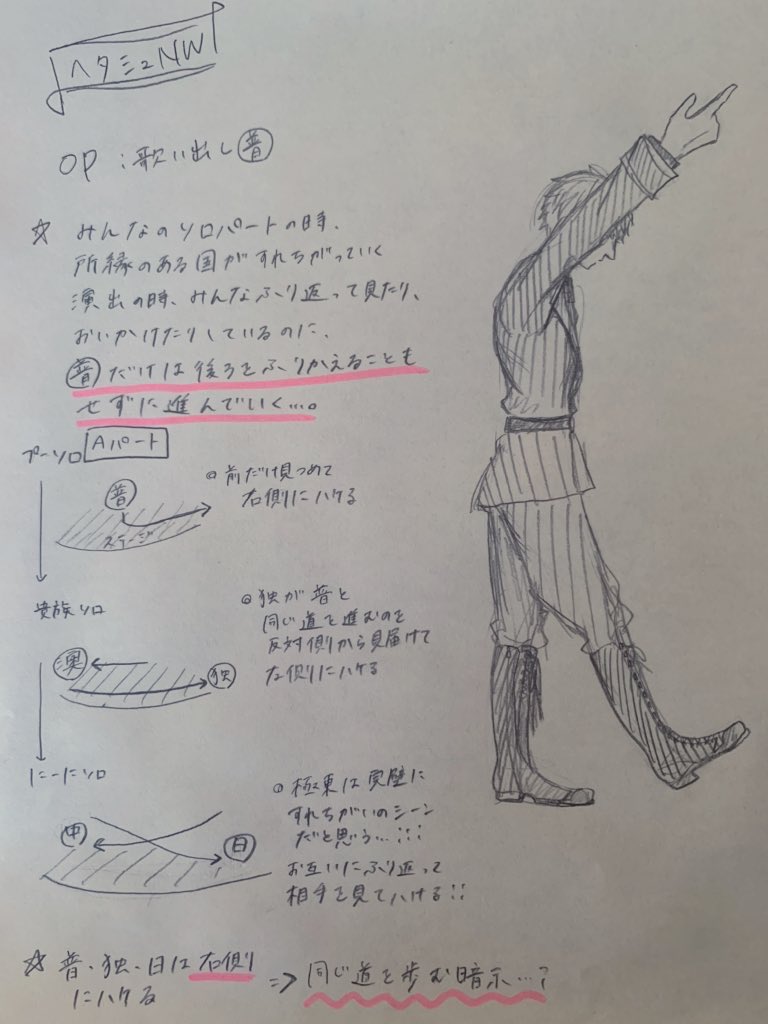 ヘタミュNW
OP:歌い出し普
☆ みんなのソロパートの時、
所縁のある国がすれちがっていく
演出の時、みんなふり返って見たり、
おいかけたりしているのに、
普だけは後ろをふりかえることも
せずに進んでいく…。
プーソロ Aパート
普
ステージ
◎前だけ見つめて
右側にハケる
貴族ソロ
墺
独
◎独が普と
同じ道を進むのを
反対側から見届けて
左側にハケる
にーにソロ
中
日
◎極東は完璧に
すれちがいのシーン
だと思う…!!!
お互いにふり返って
相手を見てハケる!!
☆ 普・独・日は右側
にハケる
⇒ 同じ道を歩む暗示…?